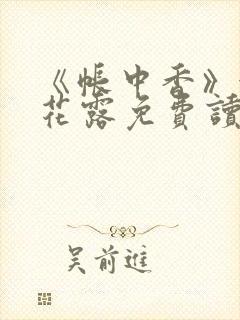 《帳中香》
花露免費讀
吳前進